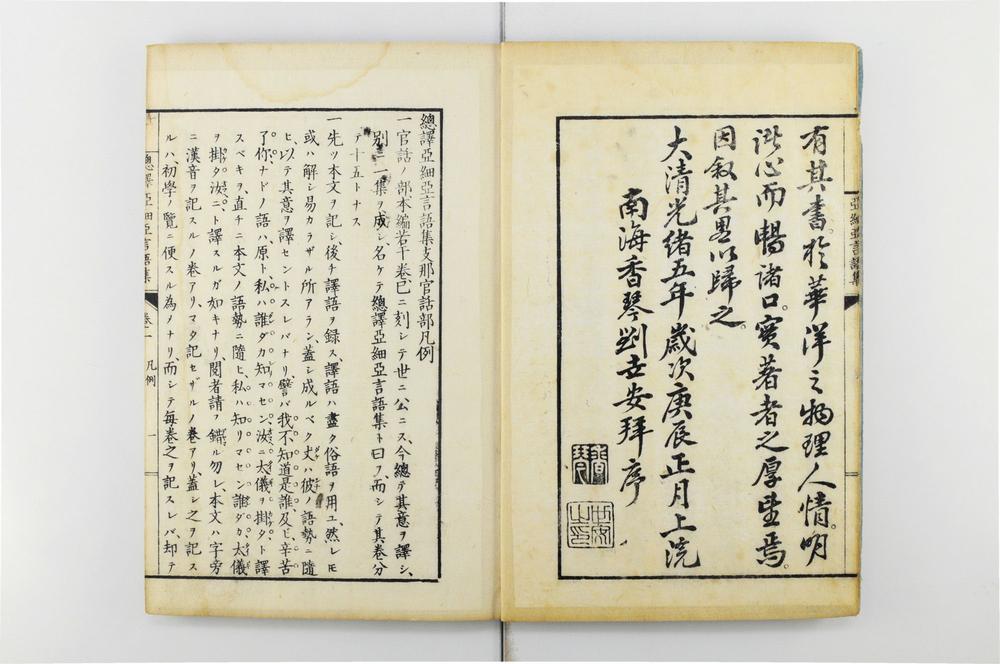 有其書於華洋之物理人情。明
於心而暢諸口。實著者之厚望焉。
因敘其畧以歸之。
大清光緒五年歲次庚辰正月上浣
南海香琴劉世安拜序
總譯亞細亞言語集支那官話部凡例
一官話ノ部本編若干卷已ニ刻シテ世ニ公ニス、今總テ其意ヲ譯シ、
別ニ一集ヲ成シ、名ケテ總譯亞細亞言語集ト曰フ、而シテ其卷分
テ十五トナス
一先ツ本文ヲ記シ、後チ譯語ヲ録ス、譯語ハ盡ク俗語ヲ用ユ、然レㇳモ
或ハ解シ易カラザル所アラン、蓋シ成ルベク丈ハ彼ノ語勢ニ隨
ヒ、以テ其意ヲ譯セントスレバナリ、譬バ我不知道是誰及ヒ辛苦
了你、ナドノ語ハ、原ト、私ハ誰ダカ知マセン、汝ニ太儀ヲ掛タト譯
スベキヲ、直チニ本文ノ語勢ニ隨ヒ、私ハ知リマセン誰ダカ、太儀
ヲ掛タ汝ニト譯スルガ如キナリ、閱者請フ錯ル勿レ、本文ハ字旁
ニ漢音ヲ記スルノ卷アリ、マタ記セザルノ卷アリ、蓋シ之ヲ記ス
ルハ初學ノ覽ニ便スル為メナリ、而シテ每卷之ヲ記スレバ、却テ
總譯亞細亞言語集
卷一
凡例
一